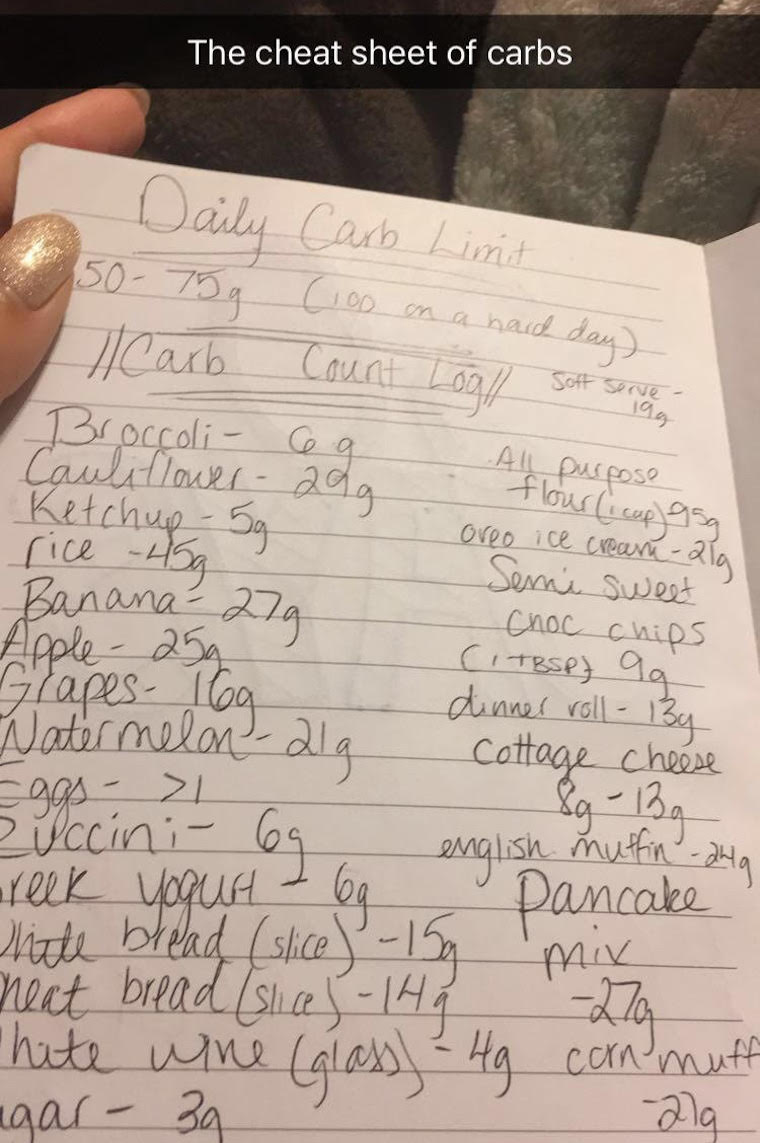 The cheat sheet of carbs
Daily Carb Limit
50 - 75g (100 on a hard day)
//Carb Count Log//
Soft serve -
19g
Broccoli - 6g
Cauliflower - 29g
Ketchup - 5g
rice - 45g
Banana - 27g
Apple - 25g
Grapes - 16g
Watermelon - 21g
Eggs - >1
Zuccini - 6g
reek yogurt - 6g
White bread (slice) - 15g
heat bread (slice) - 14g
hite wine (glass) - 4g
ugar - 3g
All purpose
flour (1 cup) 95g
oreo ice cream - 21g
Semi sweet
choc chips
(1 TBSP) 9g
dinner roll - 13g
Cottage cheese
8g - 13g
english muffin - 24g
Pancake
mix
- 27g
corn muff
- 27g